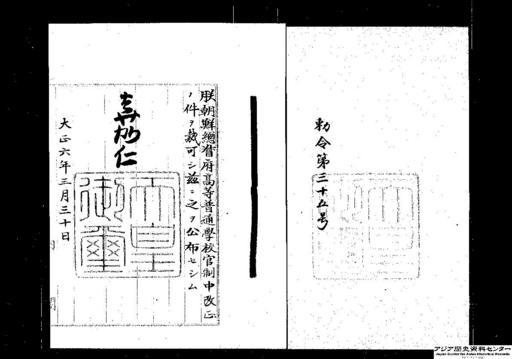 勅令第三十五号
朕朝鮮總督府高等普通學校官制中改正
ノ件ヲ裁可シ玆ニ之ヲ公布セシム
嘉仁
大正六年三月三十日
天皇
御璽
アジア歴史資料センター
Japan Center for Asian Historical Records